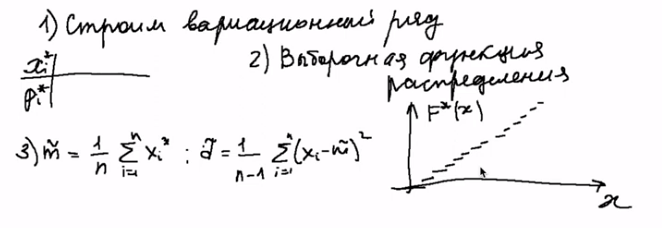 1) Строим вариационный ряд
xᵢ*
pᵢ*
2) Выборочная функция
распределения
F*(x)
x
3) m̃ = 1/n ∑ᵢ₌₁ⁿ xᵢ* ; d̃ = 1/(n-1) ∑ᵢ₌₁ⁿ (xᵢ - m̃)²